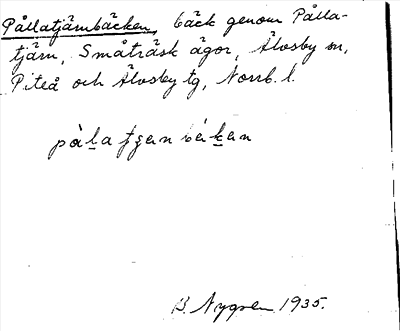 Pållatjärnbäcken, bäck genom Pålla-
tjärn, Småträsk ägor, Älvsby sn,
Piteå och Älvsby tg, Norrb. l.
B. Nygren 1935.